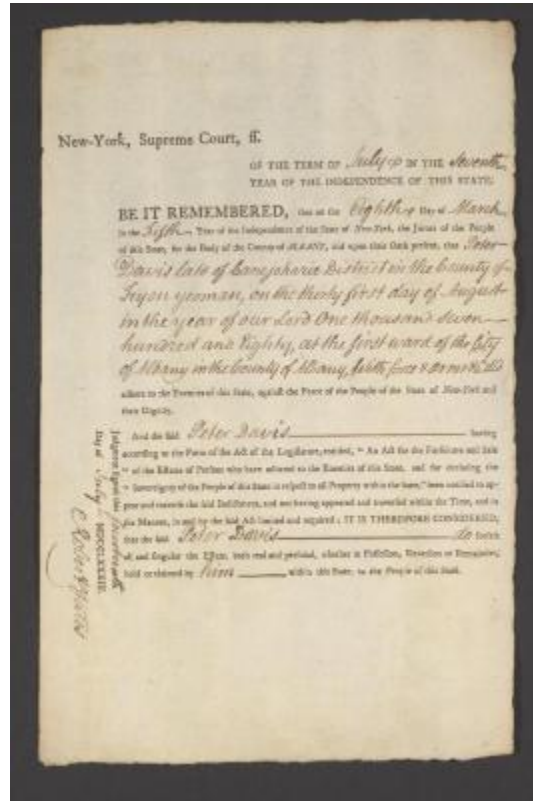 New-York, Supreme Court, ss.
OF THE TERM OF July IN THE Seventh
YEAR OF THE INDEPENDENCE OF THIS STATE.
BE IT REMEMBERED, that on the Eighth Day of March
In the Fifth Year of the Independence of the State of New-York, the Jurors of the People
of this State, for the Body of the County of ALBANY, did upon their Oath present, that Peter
Davis late of Canejoharie District in the County of
Tryon yeoman, on the thirty first day of August
in the year of our Lord One thousand seven
hundred and Eighty, at the first ward of the City
of Albany in the County of Albany, with force & arms &c. did
adhere to the Enemies of this State, against the Peace of the People of the State of New-York and
their Dignity.
And the said Peter Davis having
according to the Form of the Act of the Legislature, entitled, "An Act for the Forfeiture and Sale
"of the Estates of Persons who have adhered to the Enemies of this State, and for declaring the
"Sovereignty of the People of this State in respect to all Property within the same," been notified to ap-
pear and traverse the said Indictment, and not having appeared and traversed within the Time, and in
the Manner, in and by the said Act limited and required; IT IS THEREFORE CONSIDERED,
that the said Peter Davis do forfeit
all and singular the Estate, both real and personal, whether in Possession, Reversion or Remainder,
held or claimed by him within this State, to the People of this State.
Judgment signed this
Day of July MDCCLXXXIII.
Robert Yates